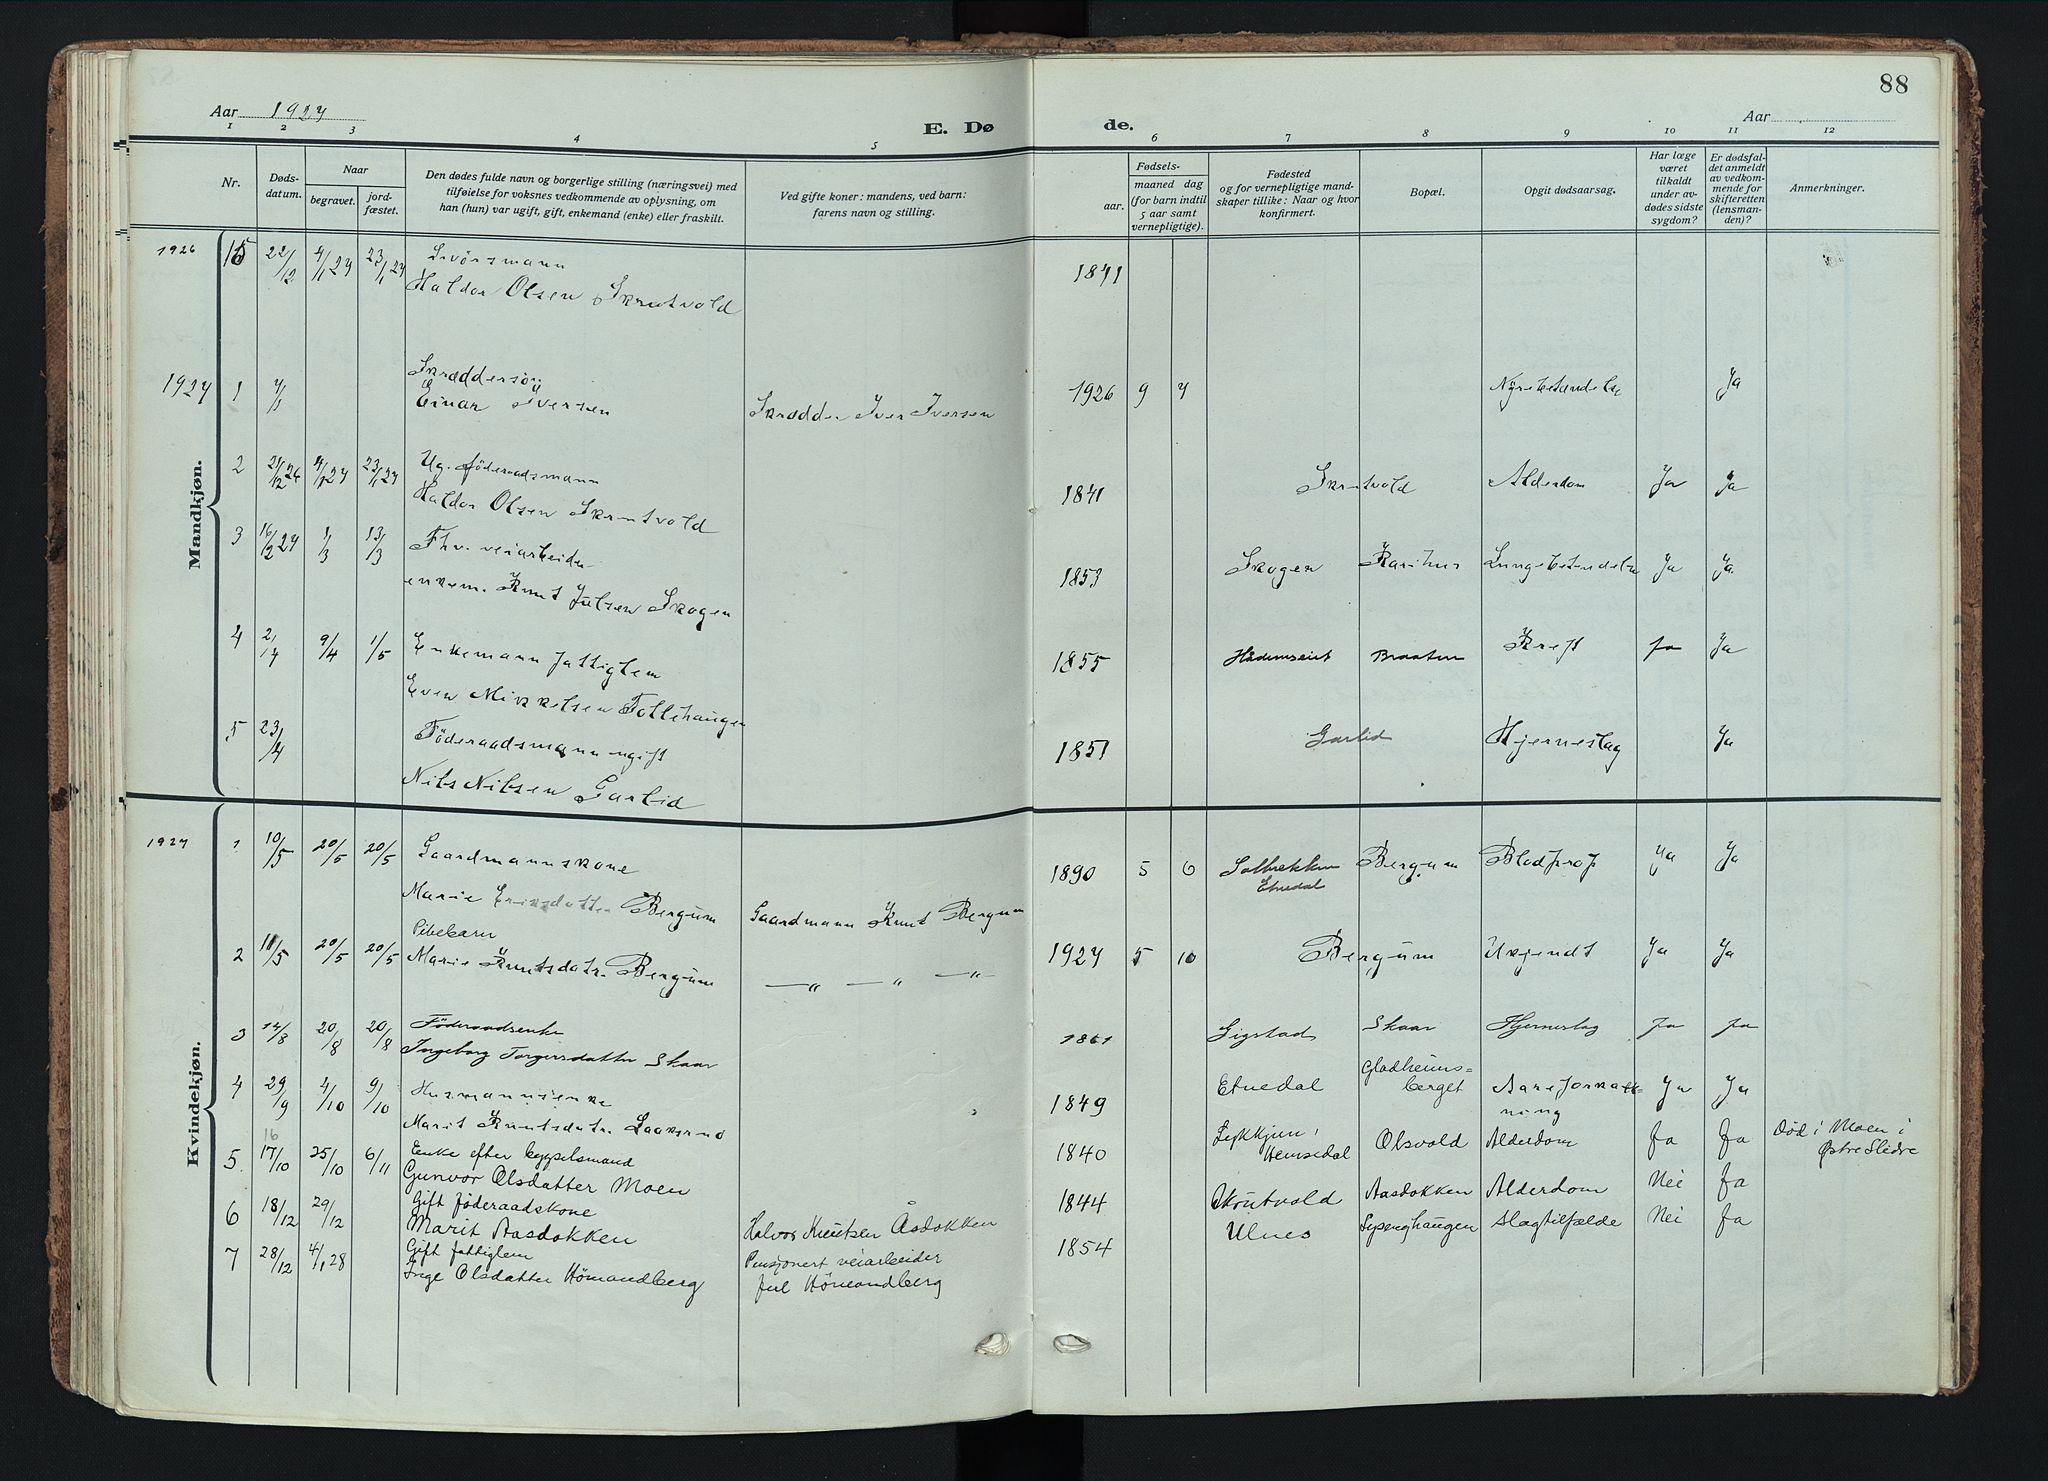 88
Aar 1927
E. Dø
de.
Aar
1 2 3 4 5
6 7 8 9 10 11 12
Nr.
Døds-
datum.
Naar
begravet.
jord-
fæstet.
Den dødes fulde navn og borgerlige stilling (næringsvei) med
tilføielse for voksnes vedkommende av oplysning, om
han (hun) var ugift, gift, enkemand (enke) eller fraskilt.
Ved gifte koner: mandens, ved barn:
farens navn og stilling.
Fødsels-
aar.
maaned dag
(for barn indtil
5 aar samt
vernepligtige).
Fødested
og for vernepligtige mand-
skaper tillike: Naar og hvor
konfirmert.
Bopæl.
Opgit dødsaarsag.
Har læge
været
tilkaldt
under av-
dødes sidste
sygdom?
Er dødsfal-
det anmeldt
av vedkom-
mende for
skifteretten
(lensman-
den)?
Anmerkninger.
Mandkjøn.
1926 15 22/12 4/1 27 23/1 27
Haldor Olsen Skrutvold
1841
1927 1 7/1 Skræddersøn
Einar Iversen Skrædder Iver Iversen
1926 9 7 Nyrebetændelse Ja
2 21/12 26 4/1 27 23/1 27 Ug. föderaadsmann
Haldor Olsen Skrutvold
1841 Skrutvold Alderdom Ja Ja
3 16/2 27 1/3 13/3 Fhv. veiarbeider
enkem. Knut Julsen Skogen
1853 Skogen Karihus Lungebetendelse Ja Ja
4 2/4 9/4 1/5 Enkemann fattiglem
Even Mikkelsen Follehaugen
1855 Braaten Kreft ja Ja
5 23/4 Föderaadsmann ugift
Nils Nilsen Garlid
1851 Garlid Hjerneslag Ja
Kvindekjøn.
1927 1 10/5 20/5 20/5 Gaardmannskone
Marie Eriksdatter Bergum Gaardmann Knut Bergum
1890 5 6 Solbrekken
Etnedal
Bergum Blodprop Ja Ja
Pibebarn
2 11/5 20/5 20/5 Marie Knutsdatr. Bergum — „ — „ — „ —
1927 5 10 Bergum Ukjendt Ja Ja
3 14/8 20/8 20/8 Föderaadsenke
Ingeborg Torgersdatter Skaar
1861 Gigstad Skaar Hjerneslag ja ja
4 29/9 4/10 9/10 Husmannsenke
Marit Knutsdatr. Laakerud
1849 Etnedal Gladheims=
berget
Aareforkalk-
ning
Ja Ja
16
5 17/10 25/10 6/11 Enke efter bygselsmand
Gunvor Olsdatter Moen
1840 Lykkjun i
Hemsedal
Olsvold Alderdom Ja Ja Död i Moen i
Østre Slidre
6 18/12 29/12 Gift föderaadskone
Marit Aasdokken Halvor Knutsen Åsdokken
1844 Skrutvold Aasdokken Alderdom Nei Ja
7 28/12 4/1 28 Gift fattiglem
Inge Olsdatter Hömandberg
Pensjonert veiarbeider
Jul Hömandberg
1854 Ulnes Lyseng haugen Slagtilfælde Nei Ja